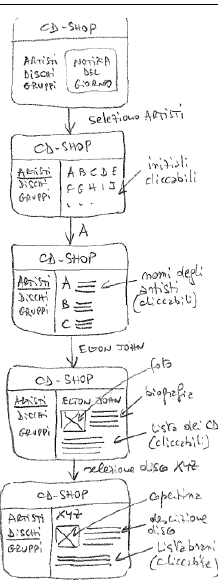 CD-SHOP
ARTISTI
DISCHI
GRUPPI
NOTIZIA
DEL
GIORNO
seleziono ARTISTI
CD-SHOP
ARTISTI
DISCHI
GRUPPI
A B C D E
F G H I J
. . .
iniziali
cliccabili
A
CD-SHOP
ARTISTI
DISCHI
GRUPPI
A
B
C
nomi degli
artisti
(cliccabili)
ELTON JOHN
CD-SHOP
ARTISTI
DISCHI
GRUPPI
ELTON JOHN
foto
biografia
lista dei CD
(cliccabili)
selezione disco XYZ
CD-SHOP
ARTISTI
DISCHI
GRUPPI
XYZ
copertina
descrizione
disco
lista brani
(cliccabile)